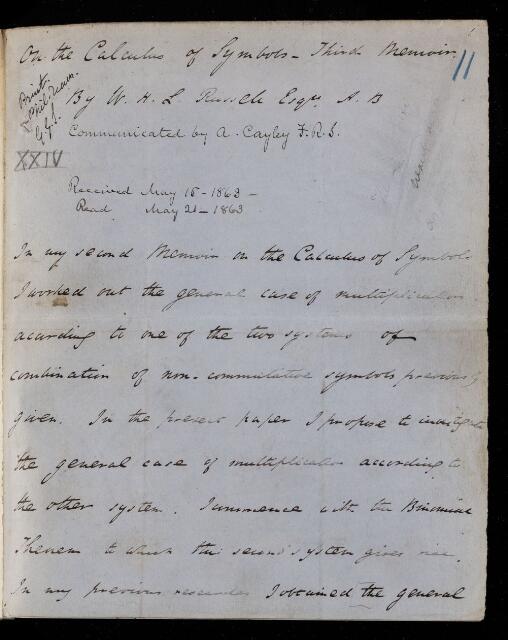 On the Calculus of Symbols - Third Memoir.
11
Print
Phil. Trans.
G.G.S.
By W. H. L. Russell Esqre A. B
Communicated by A. Cayley F.R.S.
XXIV
Received May 18 - 1863 -
Read May 21 - 1863
In my second Memoir on the Calculus of Symbols
I worked out the general case of multiplication
according to one of the two systems of
combination of non-commutative symbols previously
given. In the present paper I propose to investigate
the general case of multiplication according to
the other system. I commence with the Binomial
Theorem to which this second system gives rise.
In my previous researches I obtained the general